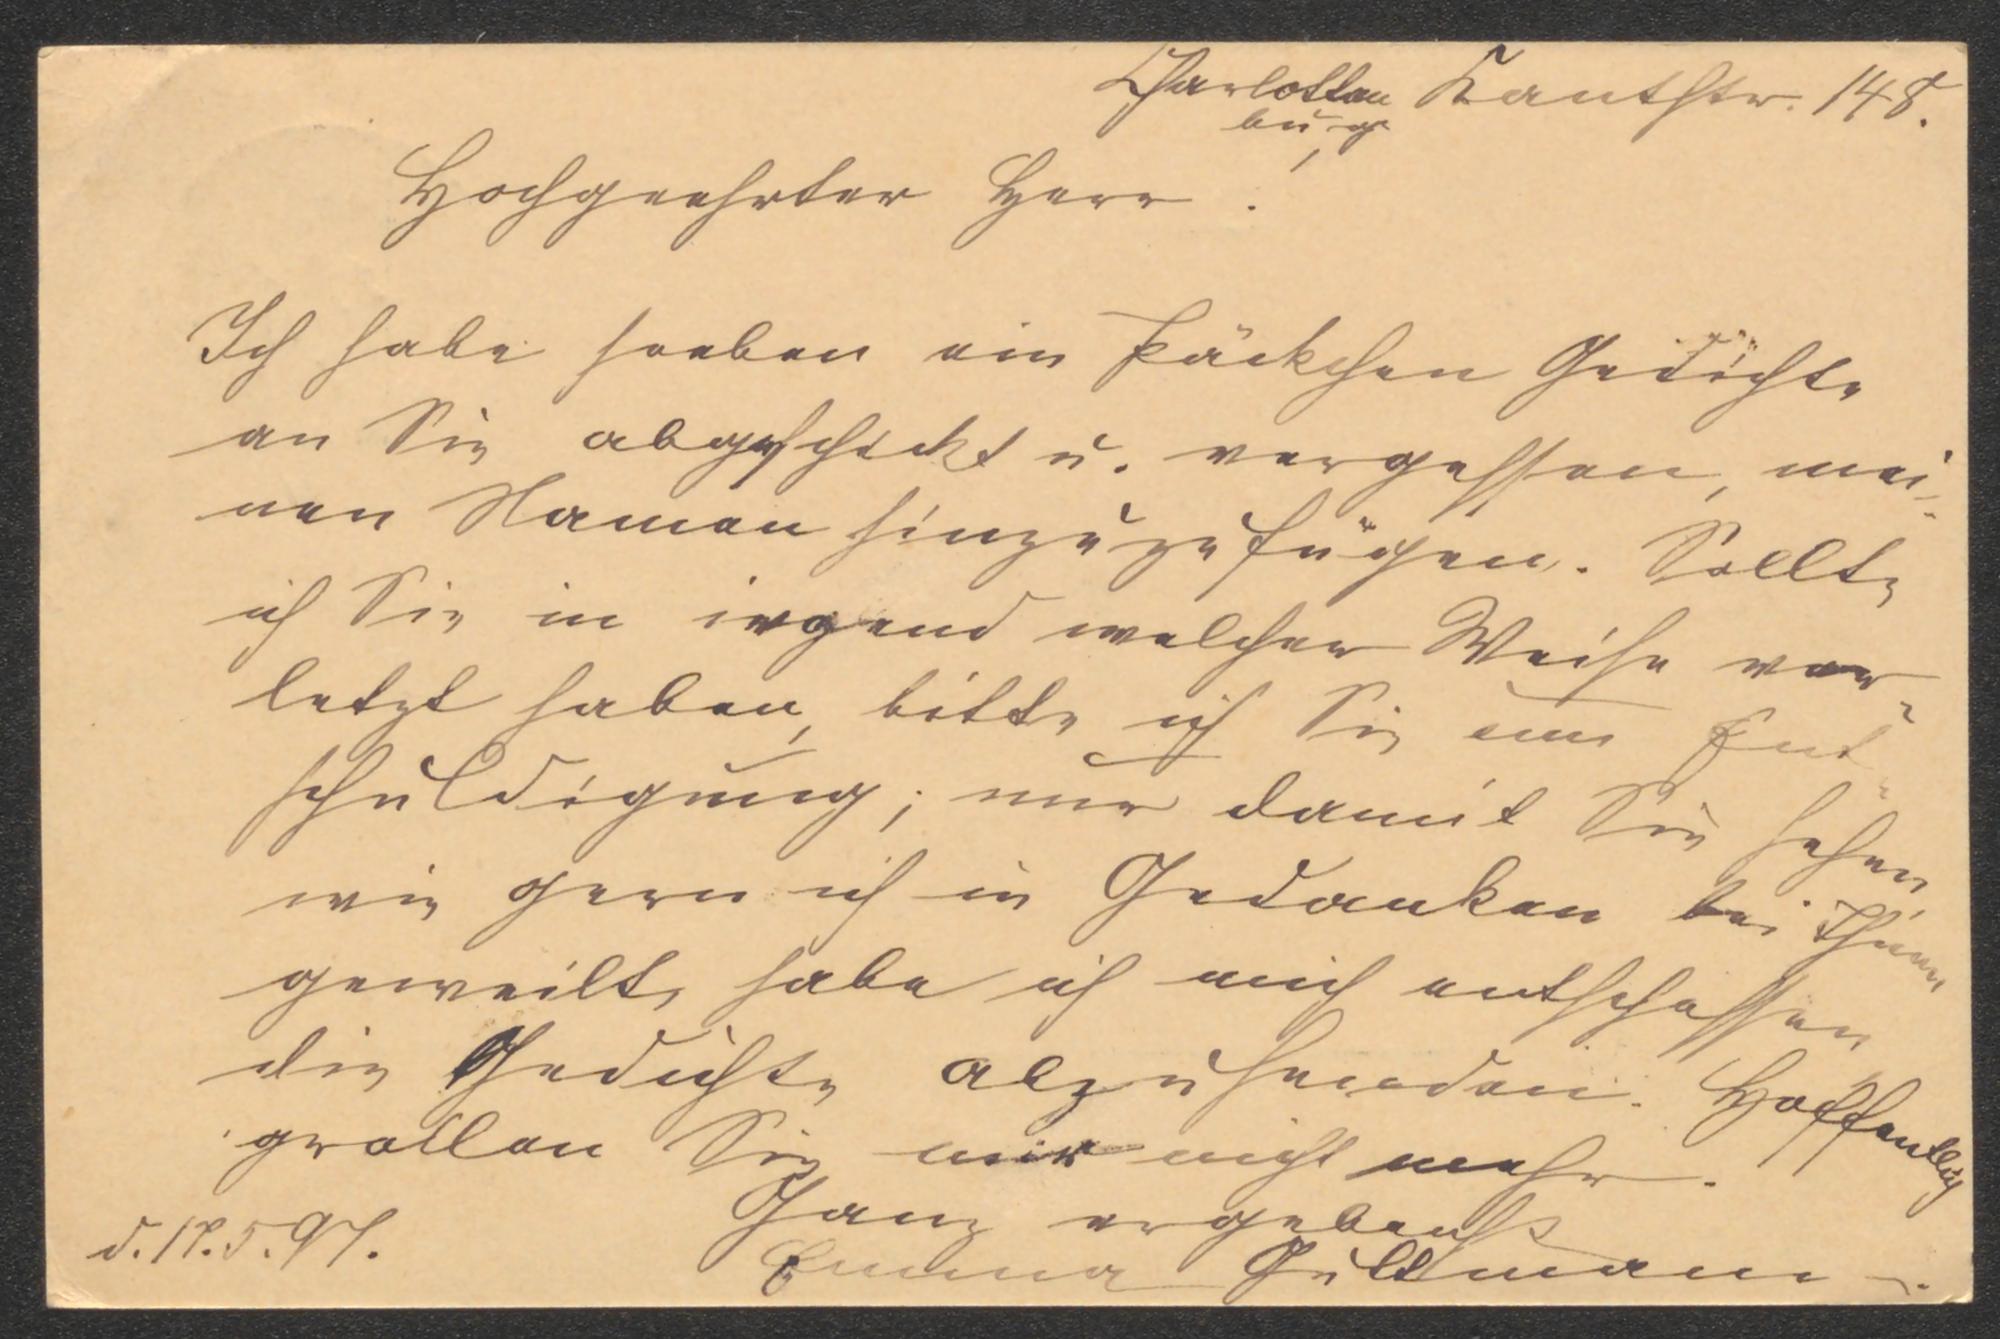 Charlotten Kantstr. 148.
burg
Hochgeehrter Herr!
Ich habe soeben ein Päckchen Gedichte
an Sie abgeschickt u. vergessen, mei-
nen Namen hinzuzufügen. Sollte
ich Sie in irgend welcher Weise ver-
letzt haben, bitte ich Sie um Ent-
schuldigung; nur damit Sie sehen,
wie gern ich in Gedanken bei Ihnen
geweilt, habe ich mich entschlossen
die Gedichte abzusenden. Hoffentlich
grollen Sie mir nicht mehr.
Ganz ergebenst
d. 17.5.97.
Emma